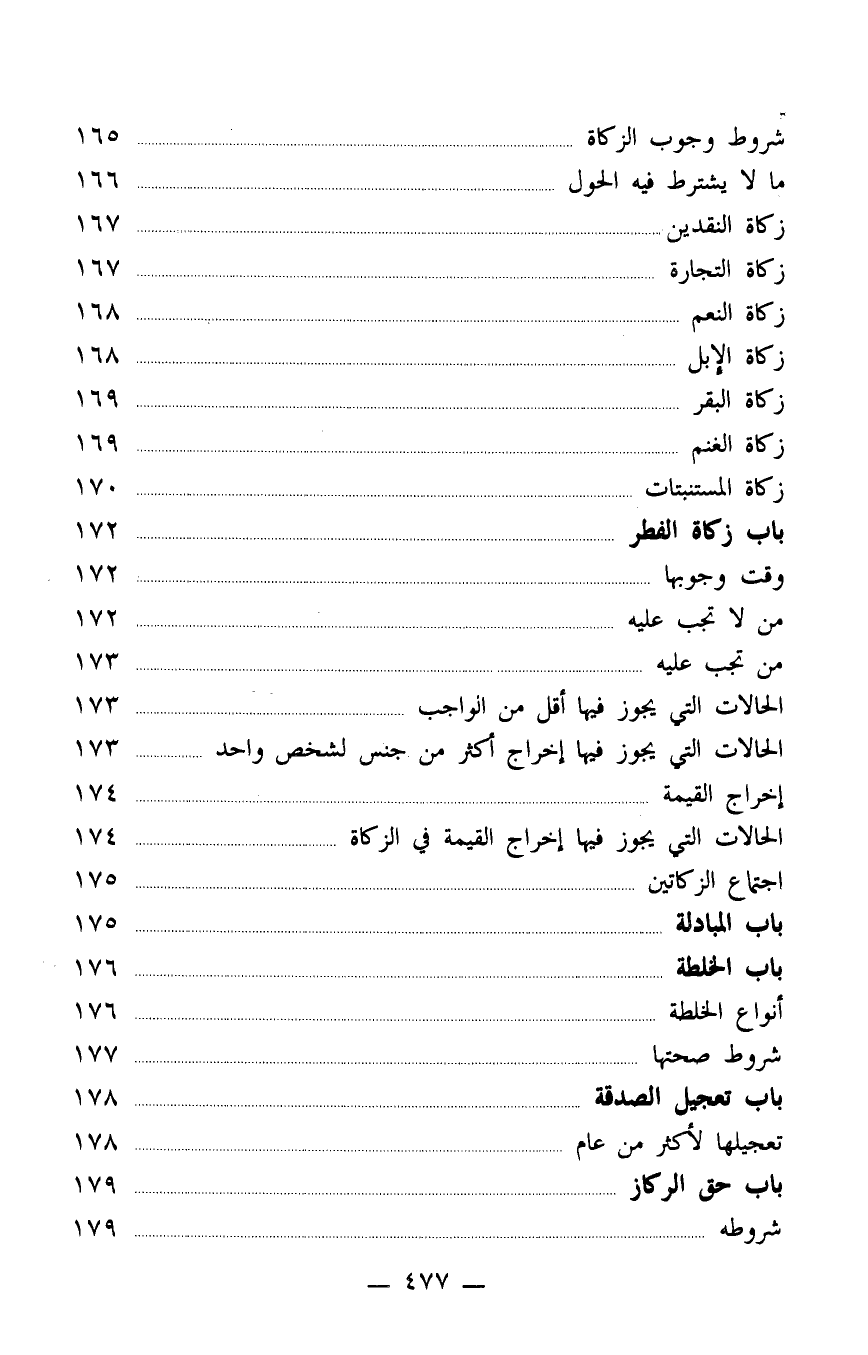 شروط وجوب الزكاة ١٦٥
ما لا يشترط فيه الحول ١٦٦
زكاة النقدين ١٦٧
زكاة التجارة ١٦٧
زكاة النعم ١٦٨
زكاة الإبل ١٦٨
زكاة البقر ١٦٩
زكاة الغنم ١٦٩
زكاة المستنبتات ١٧٠
باب زكاة الفطر ١٧٢
وقت وجوبها ١٧٢
من لا تجب عليه ١٧٢
من تجب عليه ١٧٣
الحالات التي يجوز فيها أقل من الواجب ١٧٣
الحالات التي يجوز فيها إخراج أكثر من جنس لشخص واحد ١٧٣
إخراج القيمة ١٧٤
الحالات التي يجوز فيها إخراج القيمة في الزكاة ١٧٤
اجتماع الزكاتين ١٧٥
باب المبادلة ١٧٥
باب الخلطة ١٧٦
أنواع الخلطة ١٧٦
شروط صحتها ١٧٧
باب تعجيل الصدقة ١٧٨
تعجيلها لأكثر من عام ١٧٨
باب حق الركاز ١٧٩
شروطه ١٧٩
— ٤٧٧ —